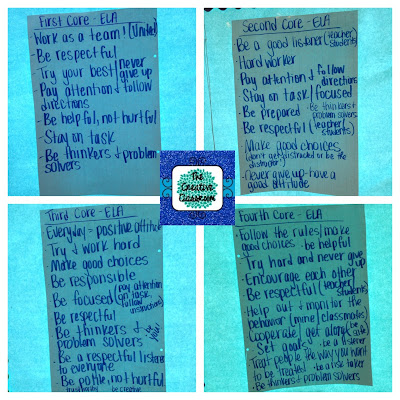 First Core - ELA
Work as a team! (United)
- Be respectful
- Try your best/never give up
- Pay attention & follow
directions
- Be helpful, not hurtful
- Stay on task
- Be thinkers & problem
solvers
Second Core - ELA
Be a good listener (teacher/students)
- Hard worker
Pay attention & follow
directions
- Stay on task/focused
- Be prepared - Be thinkers &
problem solvers
- Be respectful (teacher/
students)
- Make good choices
(don't get distracted or be the
distractor)
- never give up - have a
good attitude
The
Creative
Classroom
Third Core - ELA
Everyday = positive attitude
Try & work hard
Make good choices
Be responsible
Be focused pay attention
on task,
follow
instructions
Be respectful
Be thinkers &
problem solvers
Be a respectful listener
to everyone
Be polite, not hurtful
be creative
Fourth Core - ELA
- Follow the rules/make
good choices - be helpful
Try hard and never give
up
- Encourage each other
- Be respectful (teacher
students)
Help out & monitor the
behavior (mine/classmates)
Cooperate/get along (be
safe)
- Set goals - be a listener
Treat people the way you want
to be treated - be a risk taker
- Be thinkers & problem solvers